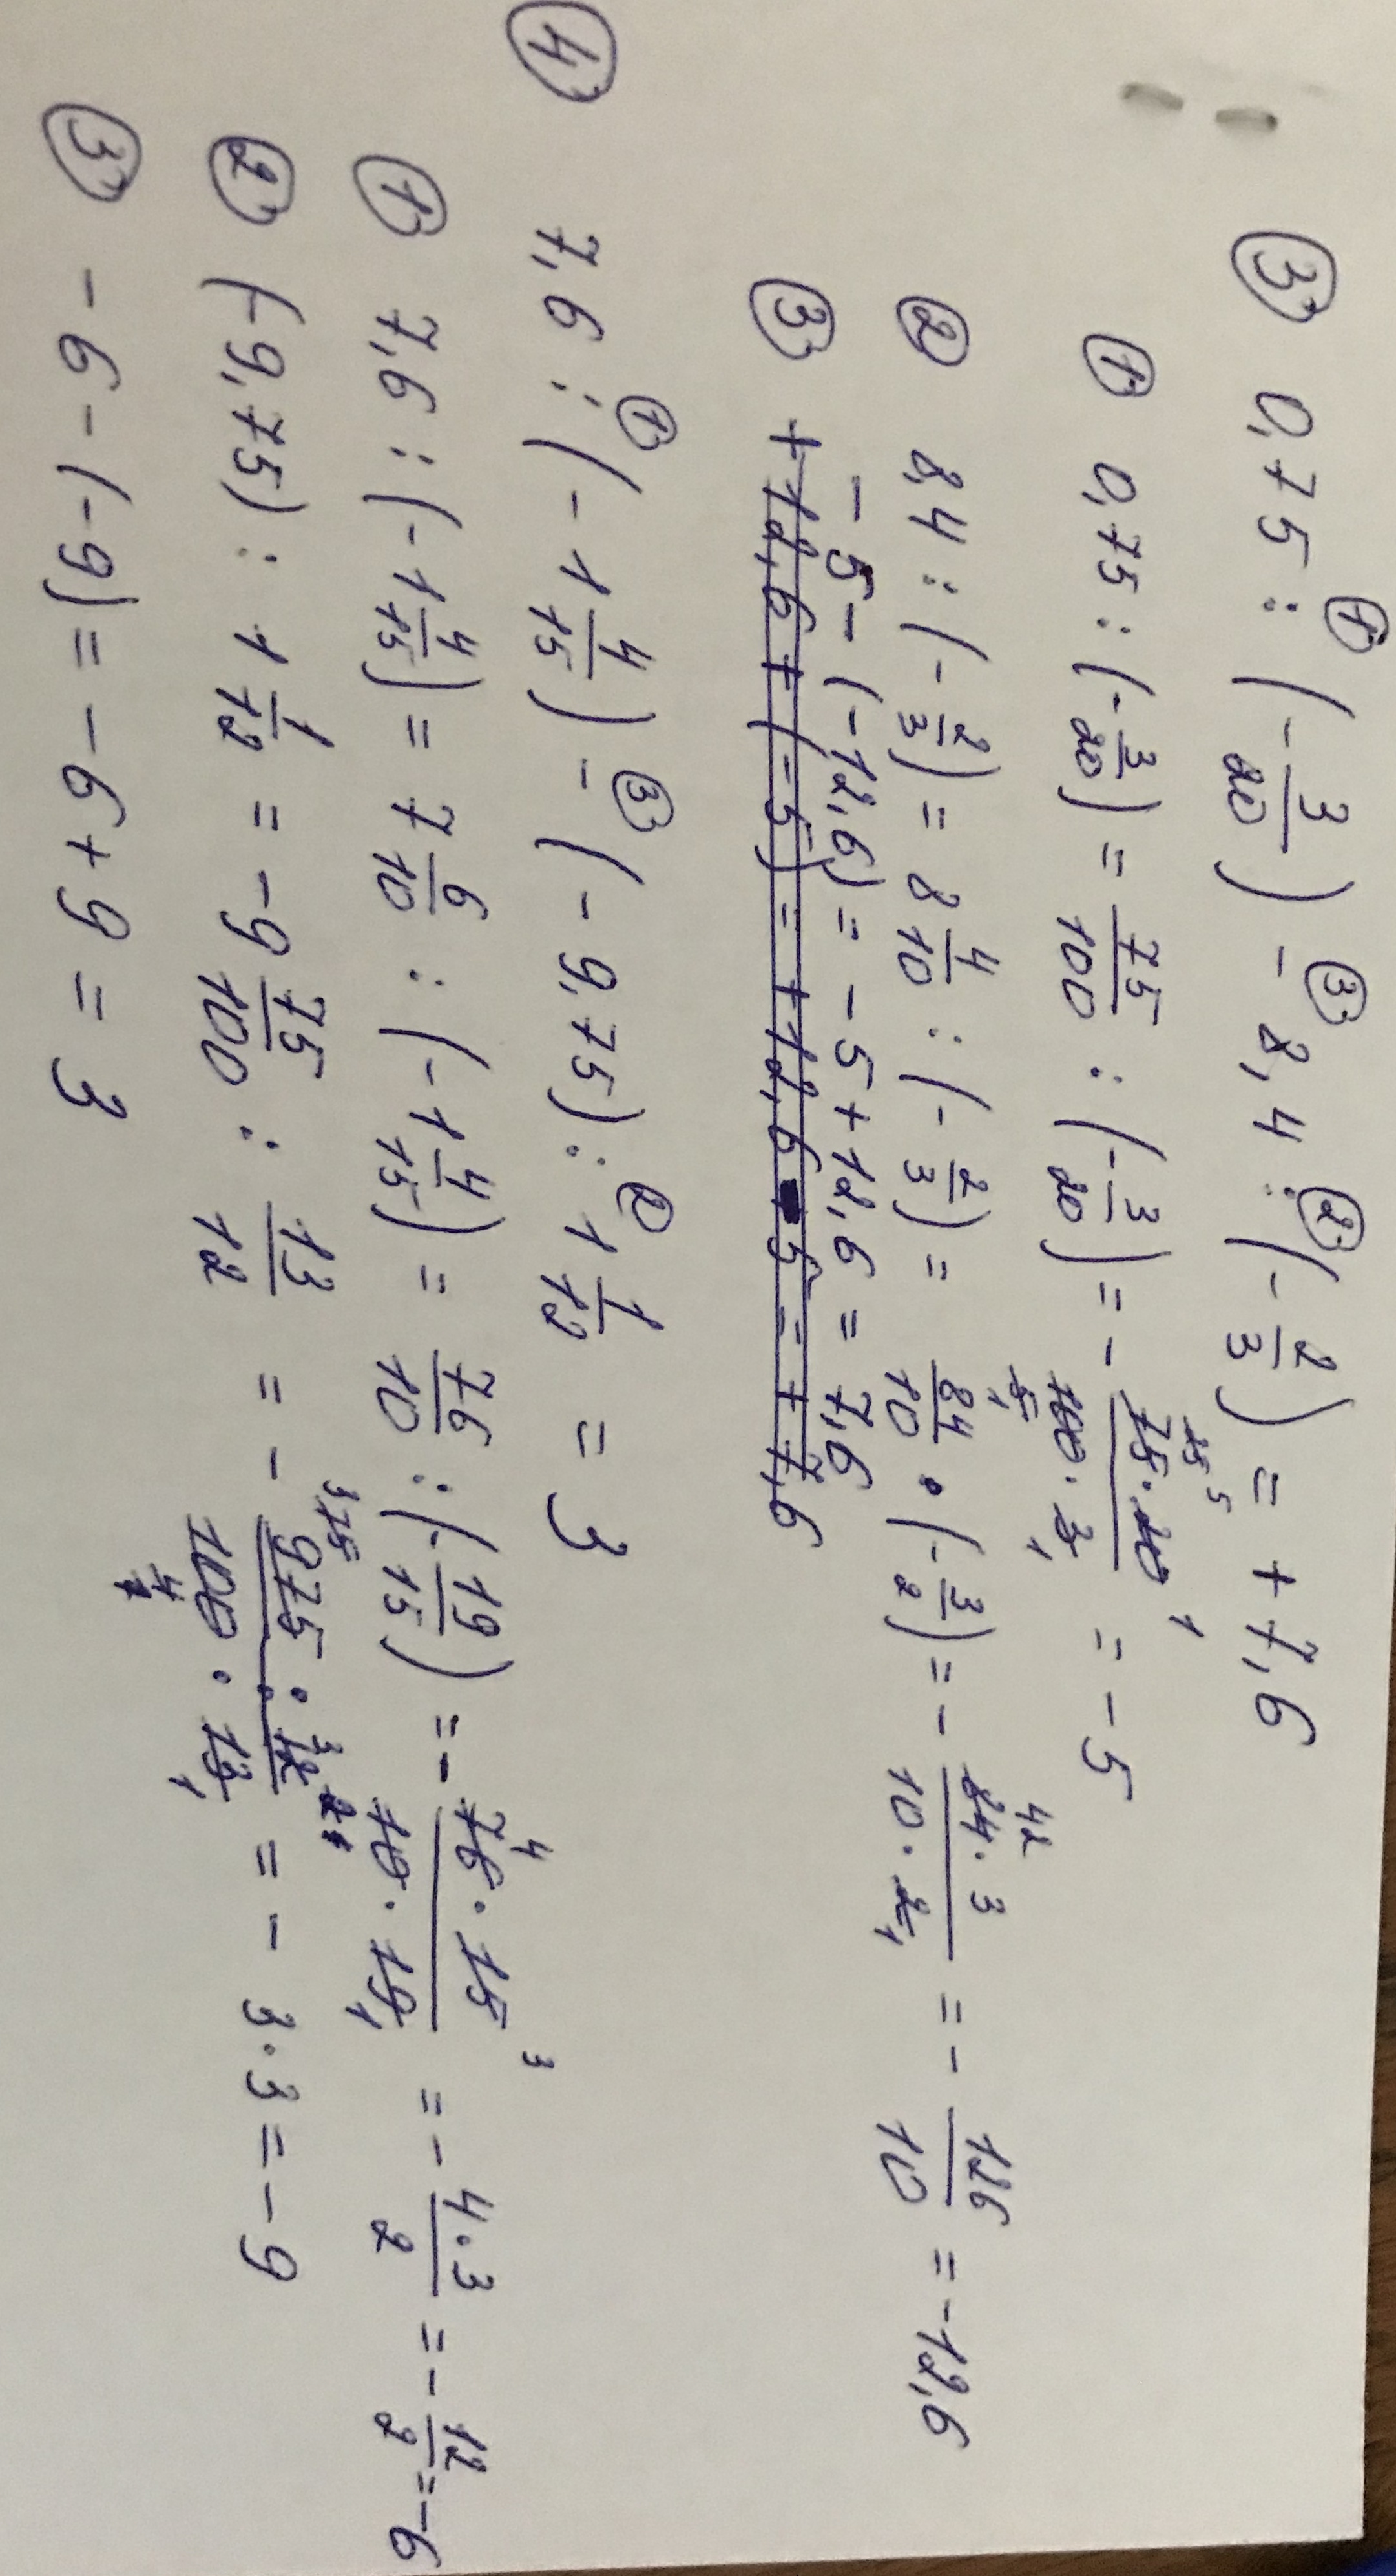 ③ 0,75 : (- 3/20) - 8,4 : (- 2/3) = + 7,6
① ③ ②
① 0,75 : (- 3/20) = 75/100 : (- 3/20) = - 75·20/100·3 = - 5
② 8,4 : (- 2/3) = 8 4/10 : (- 2/3) = 84/10 · (- 3/2) = - 84·3/10·2 = - 126/10 = -12,6
- 5 - (-12,6) = - 5 + 12,6 = 7,6
③ + 12,6 + (- 5) = + 12,6 - 5 = + 7,6
④ 7,6 : (- 1 4/15) - (- 9,75) : 1 1/12 = 3
① ③ ②
① 7,6 : (- 1 4/15) = 7 6/10 : (- 1 4/15) = 76/10 : (- 19/15) = - 76·15/10·19 = - 4·3/2 = - 12/2 = -6
② (-9,75) : 1 1/12 = -9 75/100 : 13/12 = - 975·12/100·13 = - 3·3 = -9
③ - 6 - (-9) = - 6 + 9 = 3